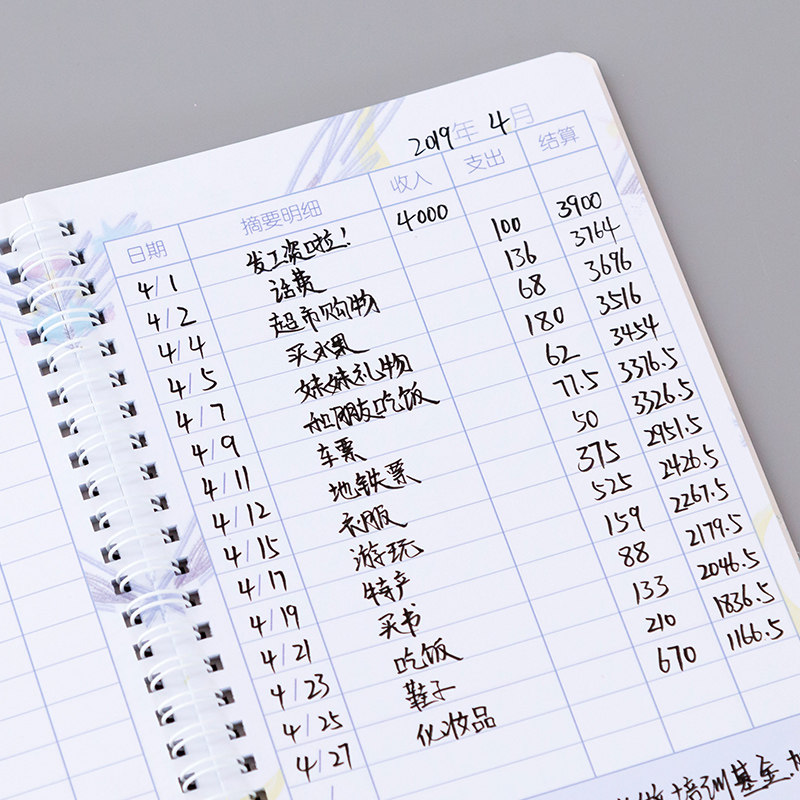 2019年 4月
日期 摘要明细 收入 支出 结算
4/1 发工资啦！ 4000
4/2 话费 100 3900
4/4 超市购物 136 3764
4/5 买水果 68 3696
4/7 妹妹礼物 180 3516
4/9 和朋友吃饭 62 3454
4/11 车票 77.5 3376.5
4/12 地铁票 50 3326.5
4/15 衣服 375 2951.5
4/17 游玩 525 2426.5
4/19 特产 159 2267.5
4/21 买书 88 2179.5
4/23 吃饭 133 2046.5
4/25 鞋子 210 1836.5
4/27 化妆品 670 1166.5
培训基金